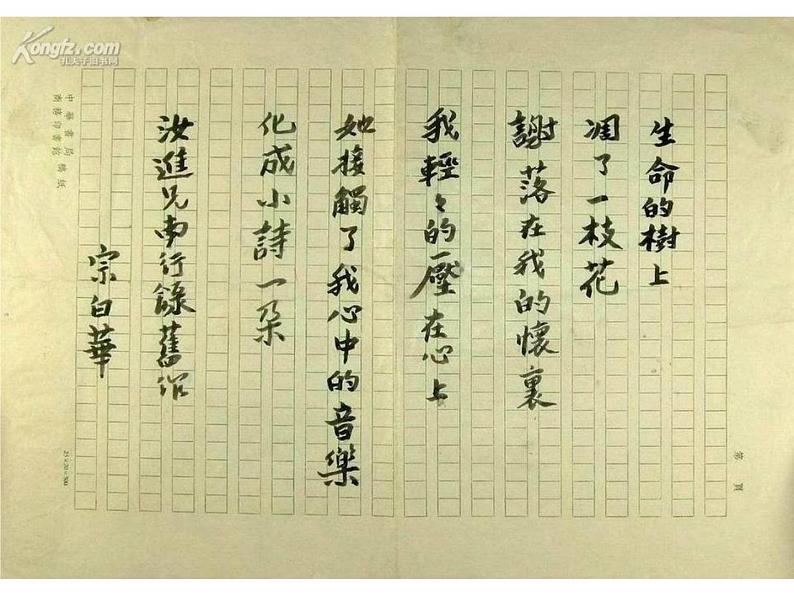 生命的樹上
凋了一枝花
謝落在我的懷裏
我輕々的壓在心上
她接觸了我心中的音樂
化成小詩一朶
汝進兄南行錄舊作
宗白華
中華書局
商務印書館 稿紙
25×20=500
第 頁
Kongfz.com
孔夫子旧书网